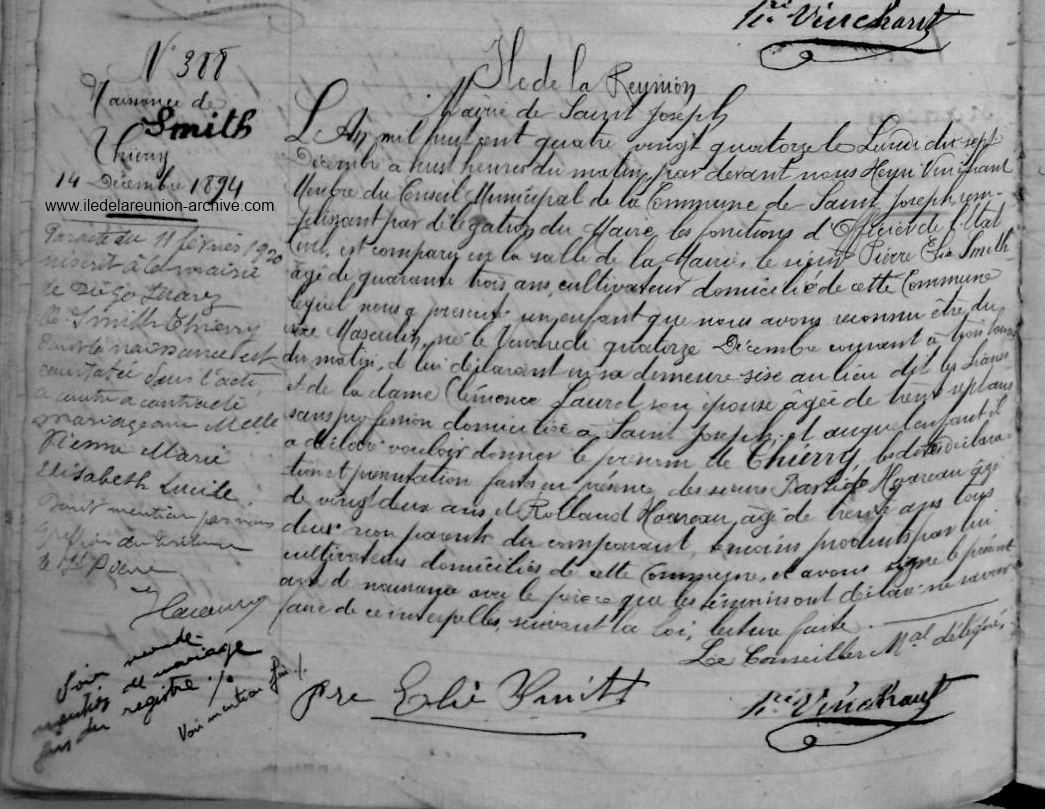 hri Vinchant
N° 388
Naissance de
Smith
Thierry
14 Décembre 1894
www.iledelareunion-archive.com
Par acte du 11 février 1920
inscrit à la mairie
de Diégo Suarez
Mr Smith Thierry
dont la naissance est
constatée dans l'acte
ci contre a contracté
mariage avec Melle
Marie
Elisabeth Lucile.
Dont mention par nous
greffier du Tribunal
de St Pierre
Voir
mention de mariage
du registre ./.
Voir mention
Ile de la Réunion
Mairie de Saint Joseph
L'An mil huit cent quatre vingt quatorze le Lundi dix sept
Décembre à huit heures du matin, par devant nous Henri Vinchant
Membre du Conseil Municipal de la Commune de Saint Joseph rem-
-plissant par délégation du Maire, les fonctions d'Officier de l'Etat
Civil, est comparu en la salle de la Mairie, le sieur Pierre Elie Smith
âgé de quarante trois ans, cultivateur domicilié de cette Commune
lequel nous a présenté un enfant que nous avons reconnu être du
sexe Masculin, né le Vendredi quatorze Décembre courant à trois heures
du matin, de lui déclarant en sa demeure sise au lieu dit les Lianes
et de la dame Clémence Lauret son épouse âgée de trente sept ans
sans profession domiciliée à Saint Joseph, et auquel enfant il
a déclaré vouloir donner le prénom de Thierry, les dites déclara-
tion et présentation faites en présence des sieurs Hoareau âgé
de vingt deux ans et Rolland Hoareau, âgé de trente ans tous
deux non parents du comparant, témoins produits par lui
cultivateurs domiciliés de cette Commune, et avons signé le présent
acte de naissance avec le père ce que les témoins ont déclaré ne savoir
faire de ce interpellés, suivant la loi, lecture faite.
Le Conseiller Mal délégué,
pre Elie Smith
hri Vinchant